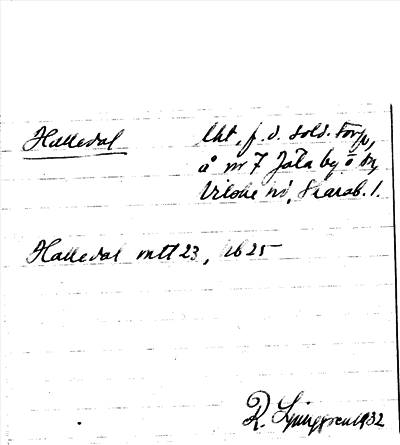 Halledal
lht, f. d. sold. torp,
å nr 7 Jäla by o by
Vilske hd, Skarab. l.
Halledal mtl 23, hb 25
R. Ljunggren 1932